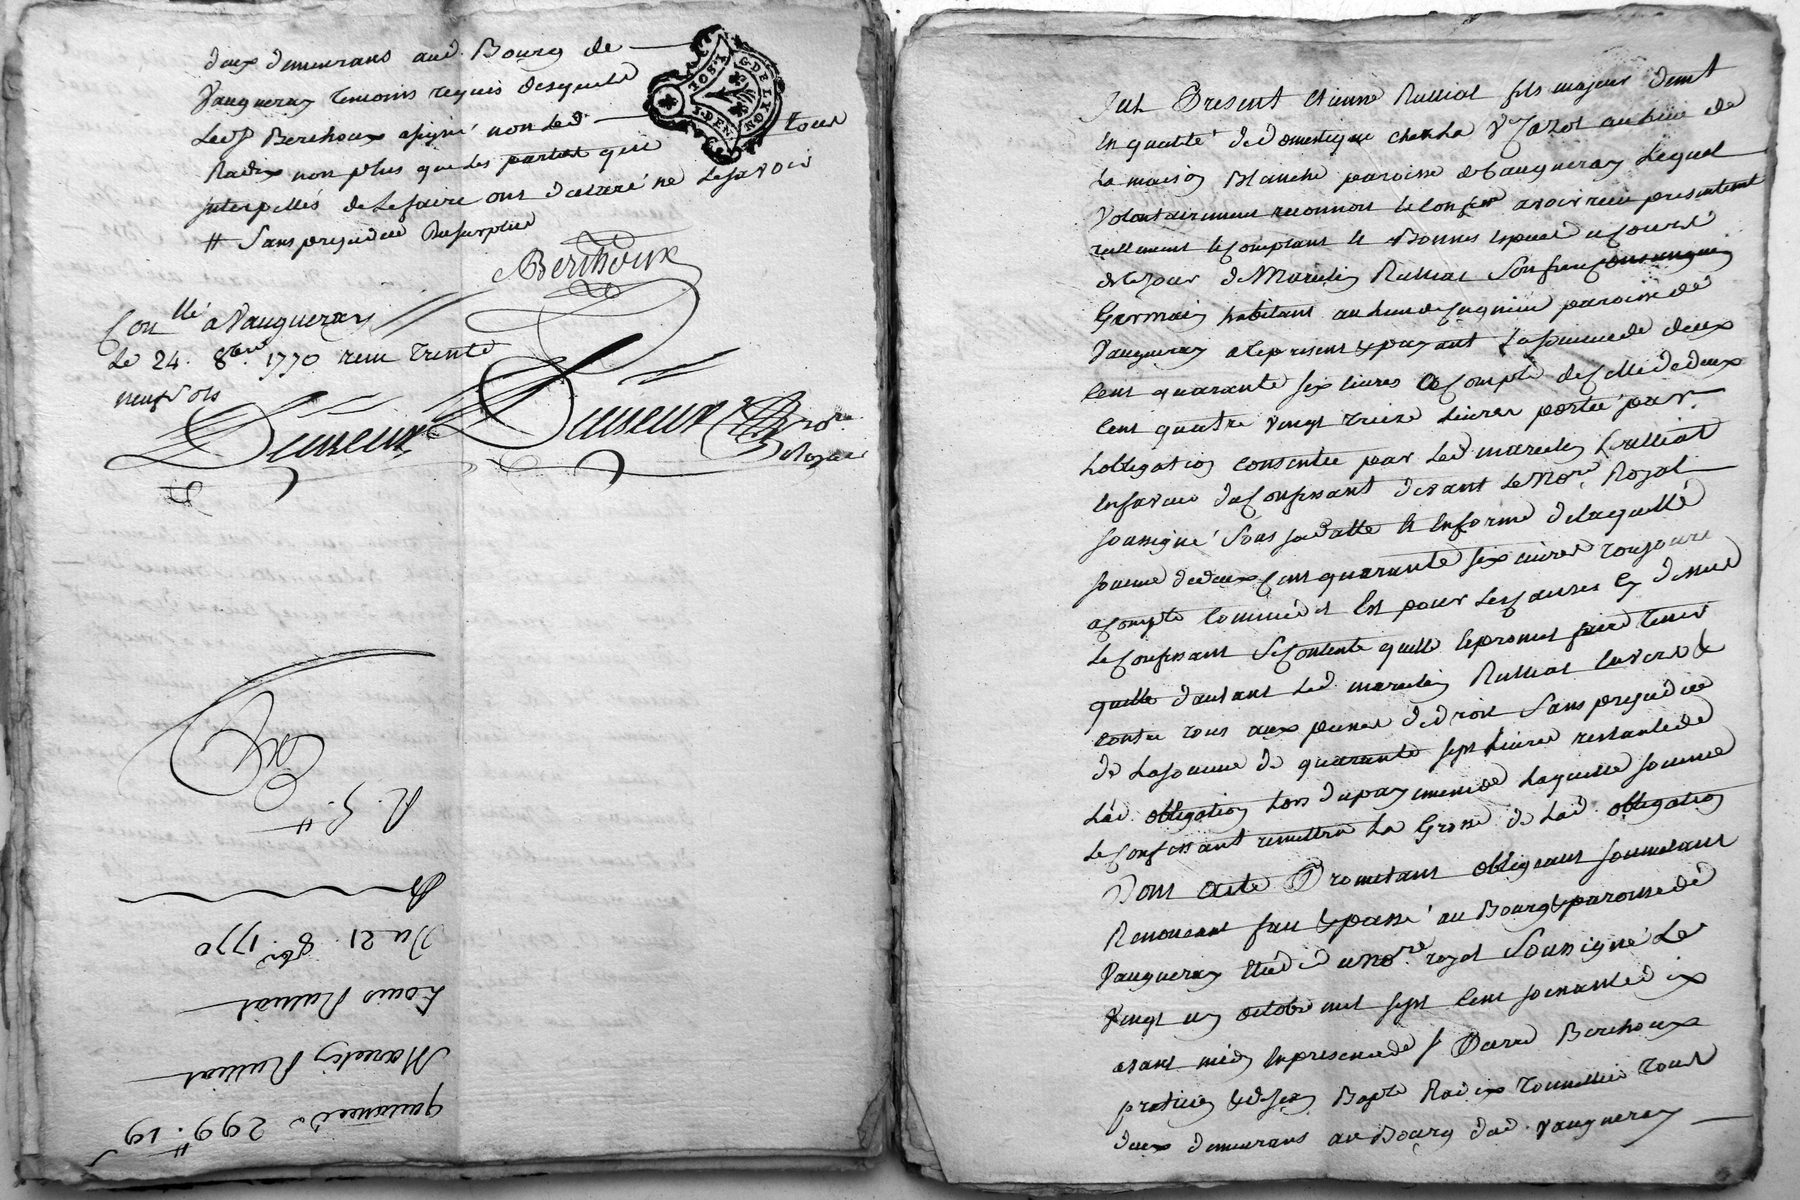 deux demeurans aud. Bourg de
Vaugneray temoins requis desquels
Led. Sr Berthoux a signé non led.
Radix non plus que les parties qui tous
interpellés de le faire ont declaré ne le savoir
# Sans prejudice du surplus
GEN. DE LYON
Berthoux
Con.llé a Vaugneray
Le 24. 8bre 1770 reçu trente
neuf sols
Dusseux
Dusseux
Nore
Royal
R. 9.#
Du 21. 8bre 1770
Louis Rulliat
Marcelin Rulliat
quittance de 299.# 19
fut Present Etienne Rulliat fils majeur demt
en qualité de domestique chez la Ve Jazot au lieu de
la maison Blanche paroisse de Vaugneray Lequel
Volontairement reconnoit et confesse avoir reçu presentemt
reellement et comptant et Bonnes especes de cours
de ce jour de Marcelin Rulliat son frere consanguin
Germain habitant au lieu de paroisse de
Vaugneray a ce present et payant La somme de deux
cent quarante six livres a compte de celle de deux
cent quatre vingt treize livres portée par
Lobligation consentie par Led. marcelin Rulliat
en faveur du confessant devant le Nore. Royal
soussigné sous sa datte et en forme de laquelle
somme de deux cent quarante six livres toujours
a compte comme dit est pour les causes cy dessus
Le confessant se contente quitte et promet faire tenir
quitte d'autant Led. marcelin Rulliat envers et
contre tous aux peines de droit Sans prejudice
de la somme de quarante sept livres restante de
Lad. obligation lors du payement de laquelle somme
Le confessant remettra la Grosse de Lad. obligation
Dont acte Promettant obligeant soumettant
Renonçant fait et passé au Bourg et paroisse de
Vaugneray Etude du nore. royal Soussigné Le
vingt un octobre mil sept cent soixante dix
avant midy en presence de Sr Pierre Berthoux
praticien et de Jean Bapte Radix tonnellier tous
deux demeurans au Bourg dud. Vaugneray